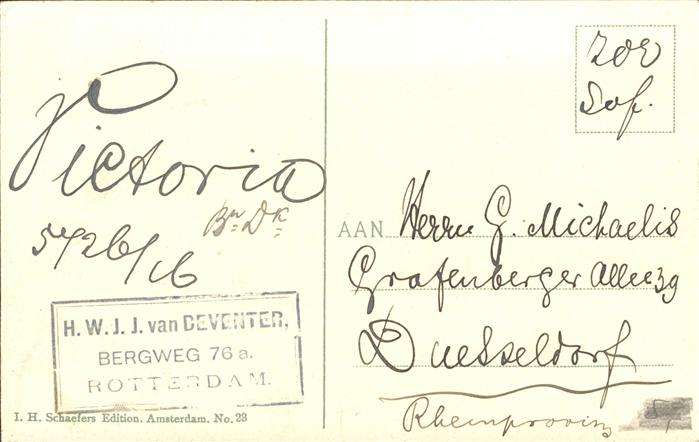 Victoria
Bn. Dk.
5/26/16
H. W. J. J. van DEVENTER,
BERGWEG 76 a.
ROTTERDAM.
I. H. Schaefers Edition. Amsterdam. No. 23
AAN Herrn G. Michaelis
Grafenberger Allee 39
Duesseldorf
Rheinprovinz